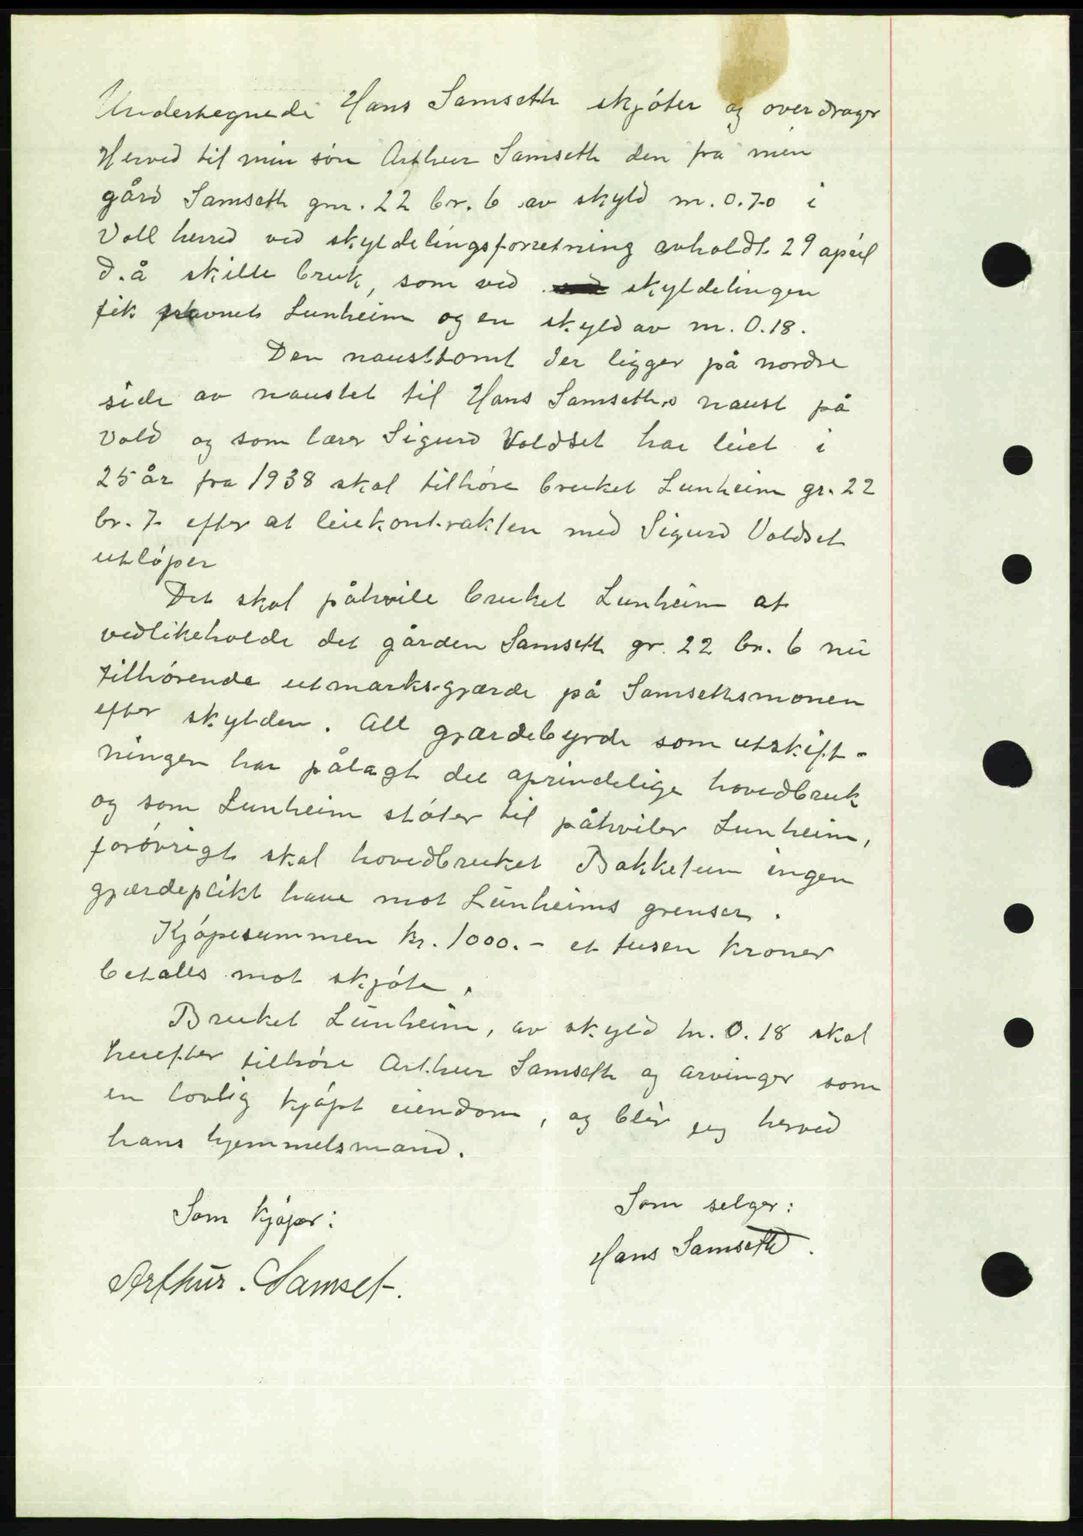 Undertegnede Hans Samseth skjóter og overdrager
Herved til min sön Arthur Samseth den fra min
gård Samseth gnr. 22 br. 6 av skyld m. 0.70 i
Voll herred ved skyldelingsforretning avholdt 29 april
d.å skille bruk, som ved skyldelingen
fik navnet Lunheim og en skyld av m. 0.18.
Den nausttomt der ligger på nordre
side av naustet til Hans Samseths naust på
Vold og som lærer Sigurd Voldset har leiet i
25 år fra 1938 skal tilhöre bruket Lunheim gr. 22
br. 7 efter at leiekontrakten med Sigurd Voldset
utlóper
Det skal påhvile bruket Lunheim at
vedlikeholde det gården Samseth gr. 22 br. 6 nu
tilhórende utmarks-gjærde på Samsethsmonen
efter skylden. All gjærdebyrde som utskift-
ningen har pålagt det oprindelige hovedbruk
og som Lunheim stóter til påhviler Lunheim,
forövrigt skal hovedbruket Bakketun ingen
gjærdeplikt have mot Lunheims grenser.
Kjópesummen kr. 1000.- et tusen kroner
betales mot skjóte.
Bruket Lunheim, av skyld m. 0.18 skal
herefter tilhóre Arthur Samseth og arvinger som
en lovlig kjópt eiendom, og blir jeg herved
hans hjemmelsmand.
Som kjóper:
Som selger:
Hans Samseth.
Arthur. Samset.